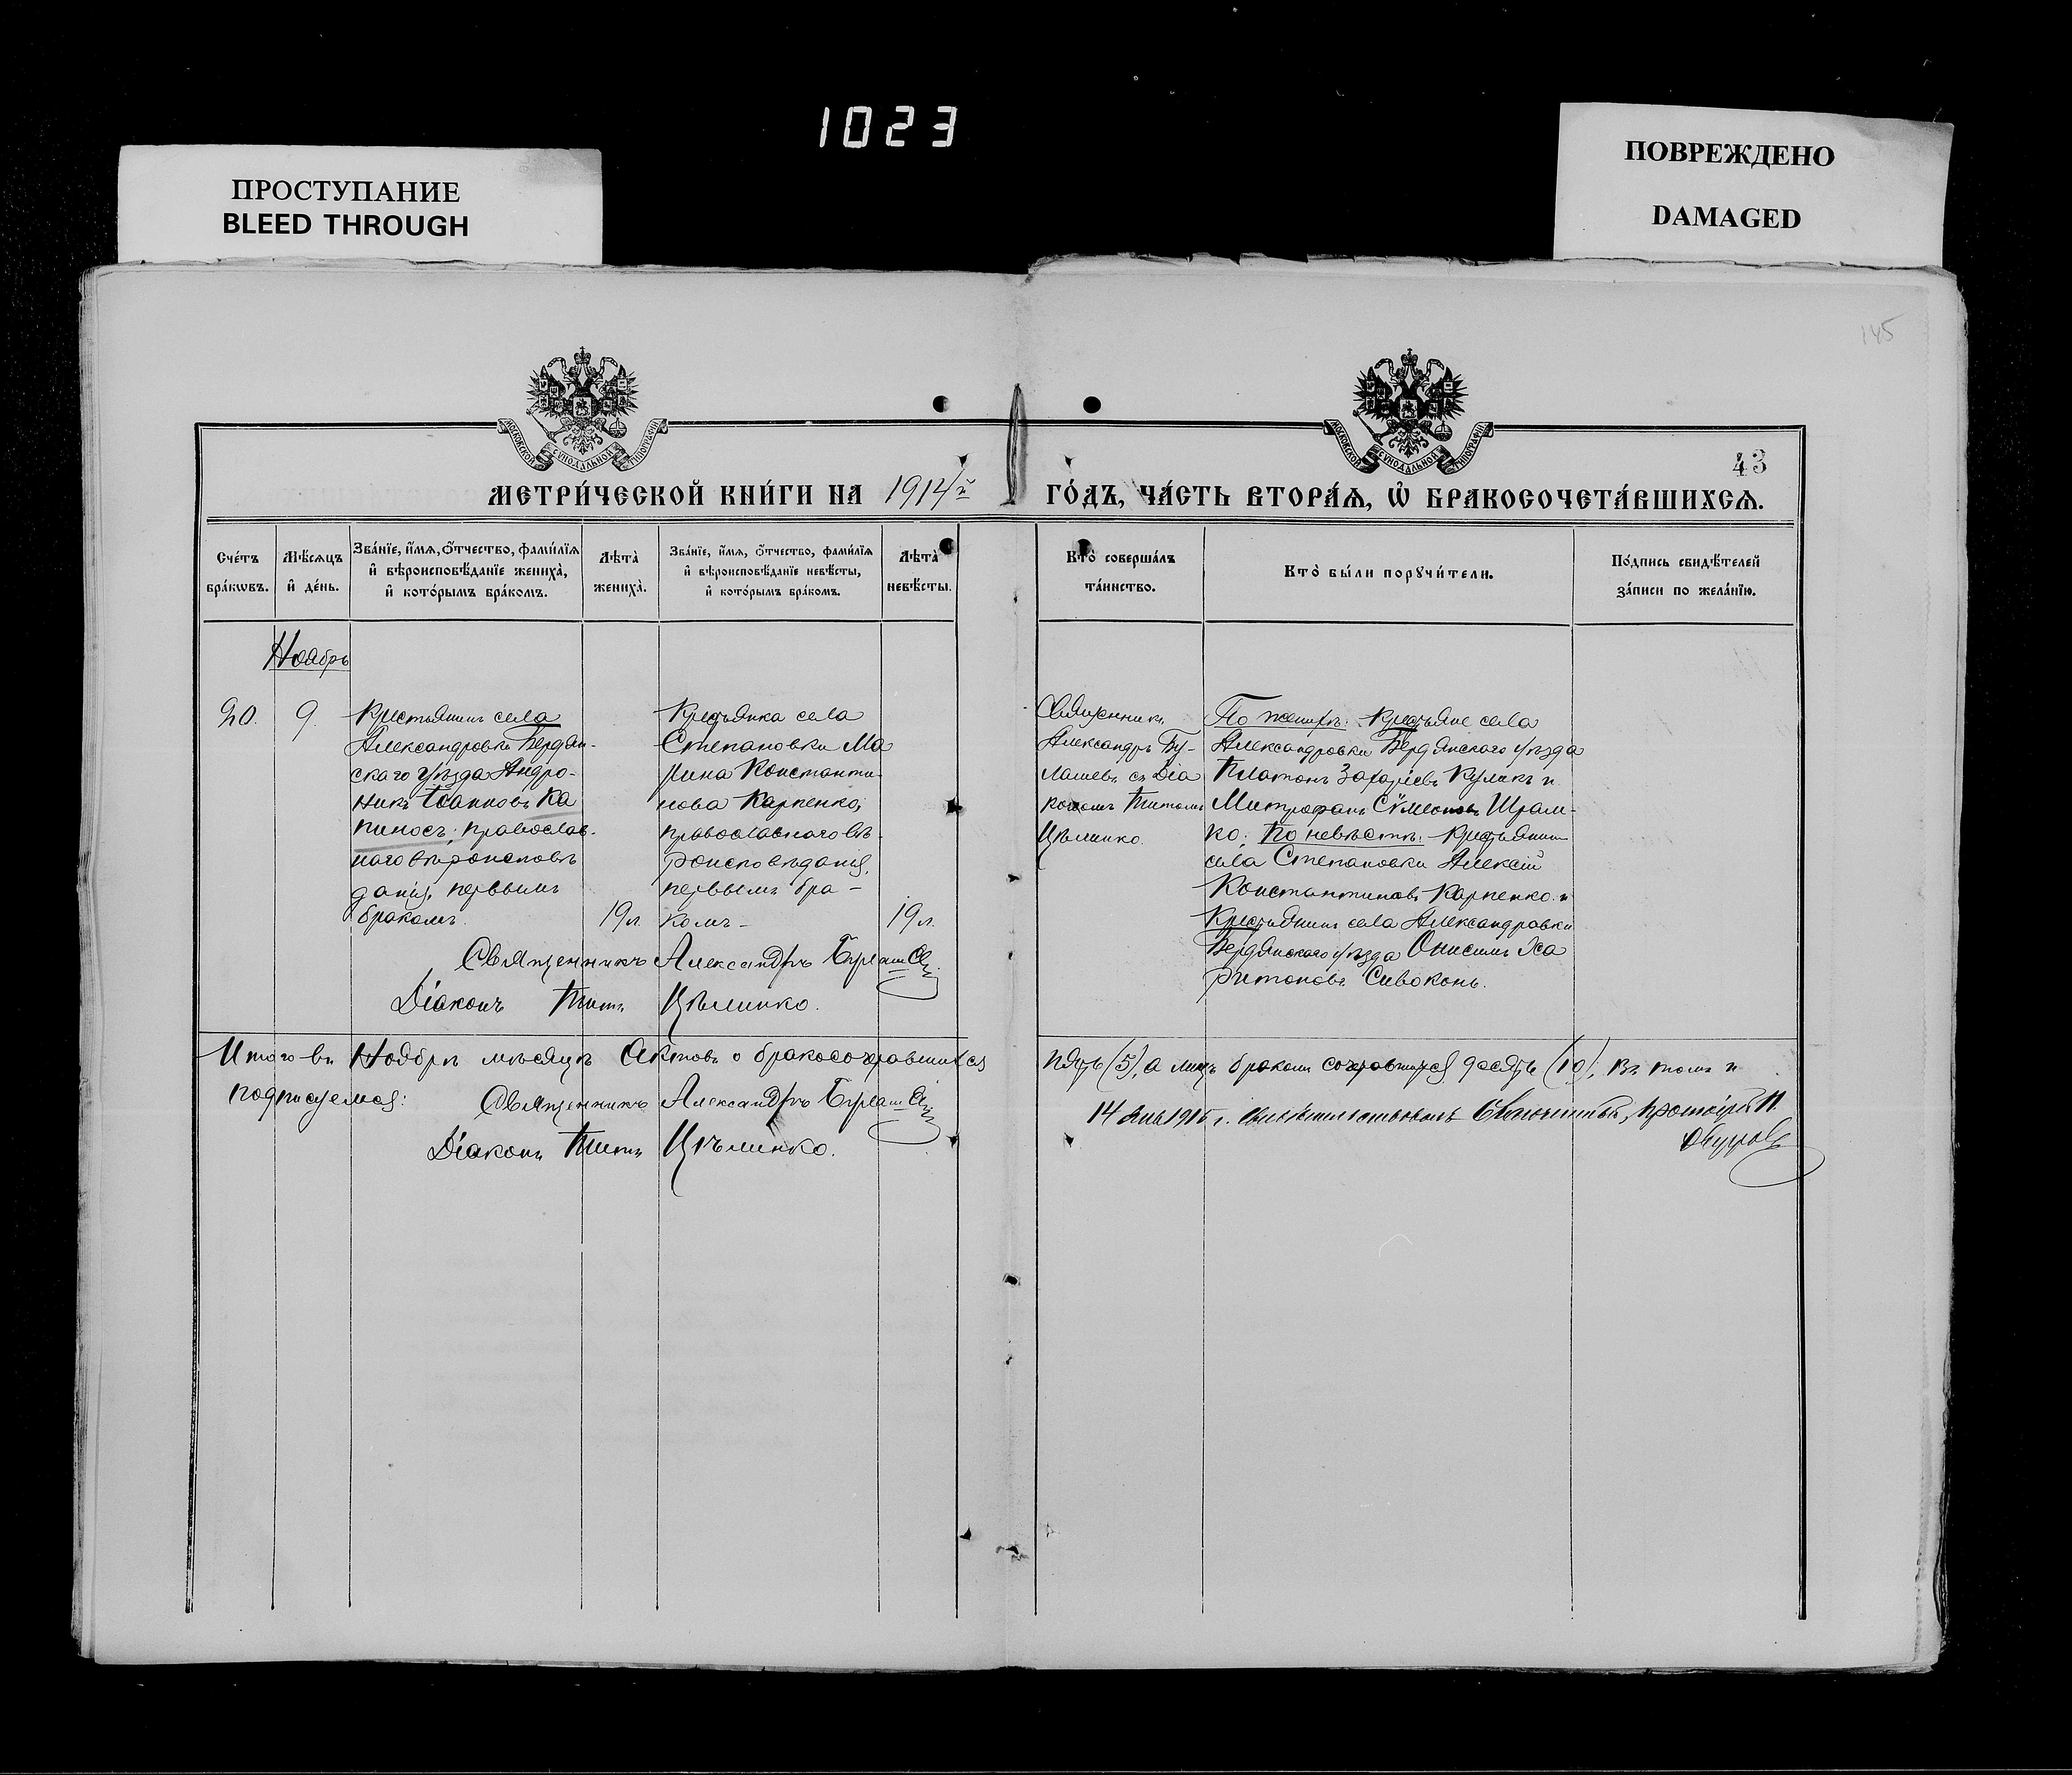 1023
ПРОСТУПАНИЕ
BLEED THROUGH
ПОВРЕЖДЕНО
DAMAGED
145
МОСКОВСКОЙ СѴНОДАЛЬНОЙ ТИПОГРАФІИ
МОСКОВСКОЙ СѴНОДАЛЬНОЙ ТИПОГРАФІИ
43
МЕТРИ́ЧЕСКОЙ КНИ́ГИ НА 1914й ГО́ДЪ, ЧА́СТЬ ВТОРА́Ѧ, Ѡ҆ БРАКОСОЧЕТА́ВШИХСѦ.
Сче́тъ бра́кѡвъ.
Мѣ́сѧцъ и҆ де́нь.
Зва́нїе, и҆́мѧ, ѻ҆́тчество, фами́лїѧ
и҆ вѣроисповѣ́данїе жениха̀,
и҆ кото́рымъ бра́комъ.
Лѣ́та̀ жениха̀.
Зва́нїе, и҆́мѧ, ѻ҆́тчество, фами́лїѧ
и҆ вѣроисповѣ́данїе невѣ́сты,
и҆ кото́рымъ бра́комъ.
Лѣ́та̀ невѣ́сты.
Кто̀ соверша́лъ
та́инство.
Кто̀ бы́ли порꙋчи́тели.
По́дпись свидѣ́телей
за́писи по жела́нїю.
Ноябрь
20.
9.
Крестьянинъ села
Александровки Бердян-
скаго уѣзда Андро-
никъ Іоанновъ Ка
пиносъ; православ-
наго вѣроисповѣ
данія, первымъ
бракомъ.
19 л.
Крестьянка села
Степановки Ма
рина Константи-
нова Карпенко,
православнаго вѣ-
роисповѣданія,
первымъ бра-
комъ-
19 л.
Священникъ
Александръ Бу-
лашевъ съ Діа
кономъ Титомъ
Цѣлинко.
По женихѣ: крестьяне села
Александровки Бердянскаго уѣзда
Платонъ Захаріевъ Куликъ и
Митрофанъ Сѵмеоновъ Шрам-
ко; По невѣстѣ: крестьянинъ
села Степановки Алексій
Константиновъ Карпенко и
Крестьянинъ села Александровки
Бердянскаго уѣзда Онисимъ Ха
ритоновъ Сивоконь.
Священникъ Александръ Булашевъ
Діаконъ Титъ Цѣлинко.
Итого въ Ноябрѣ мѣсяцѣ Актовъ о бракосочетавшихся пять (5), а лицъ бракомъ сочетавшихся десять (10), въ томъ и
подписуемся: Священникъ Александръ Булашевъ
Діаконъ Титъ Цѣлинко.
14 Янв 1915 г. свидѣтельствовалъ Благочинный, Протоіерей П.